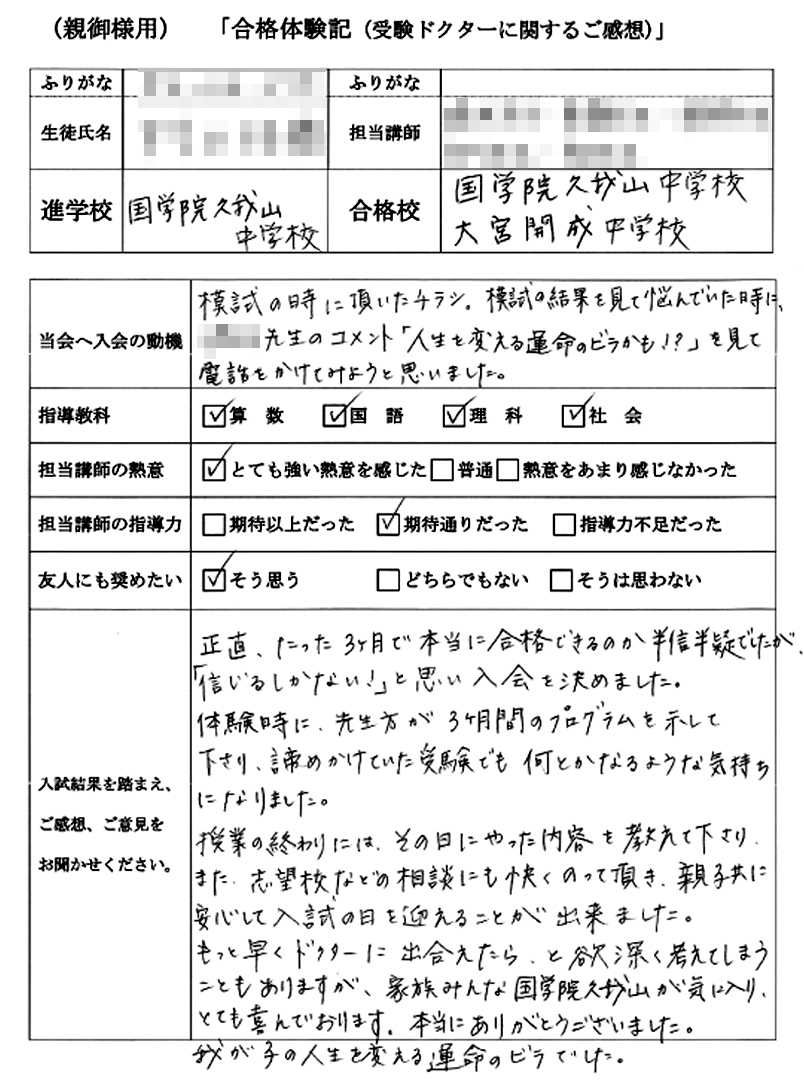 (親御様用) 「合格体験記(受験ドクターに関するご感想)」
ふりがな
ふりがな
生徒氏名
担当講師
進学校
国学院久我山
中学校
合格校
国学院久我山中学校
大宮開成中学校
当会へ入会の動機
模試の時に頂いたチラシ。模試の結果を見て悩んでいた時に、
先生のコメント「人生を変える運命のビラかも!?」を見て
電話をかけてみようと思いました。
指導教科
算 数 国 語 理 科 社 会
担当講師の熱意
とても強い熱意を感じた 普通 熱意をあまり感じなかった
担当講師の指導力
期待以上だった 期待通りだった 指導力不足だった
友人にも奨めたい
そう思う どちらでもない そうは思わない
入試結果を踏まえ、
ご感想、ご意見を
お聞かせください。
正直、たった3ヶ月で本当に合格できるのか半信半疑でしたが、
「信じるしかない!」と思い入会を決めました。
体験時に、先生方が3ヶ月間のプログラムを示して
下さり、諦めかけていた受験でも何とかなるような気持ち
になりました。
授業の終わりには、その日にやった内容を教えて下さり、
また、志望校などの相談にも快くのって頂き、親子共に
安心して入試の日を迎えることが出来ました。
もっと早くドクターに出合えたら、と欲深く考えてしまう
こともありますが、家族みんな国学院久我山が気に入り、
とても喜んでおります。本当にありがとうございました。
我が子の人生を変える運命のビラでした。